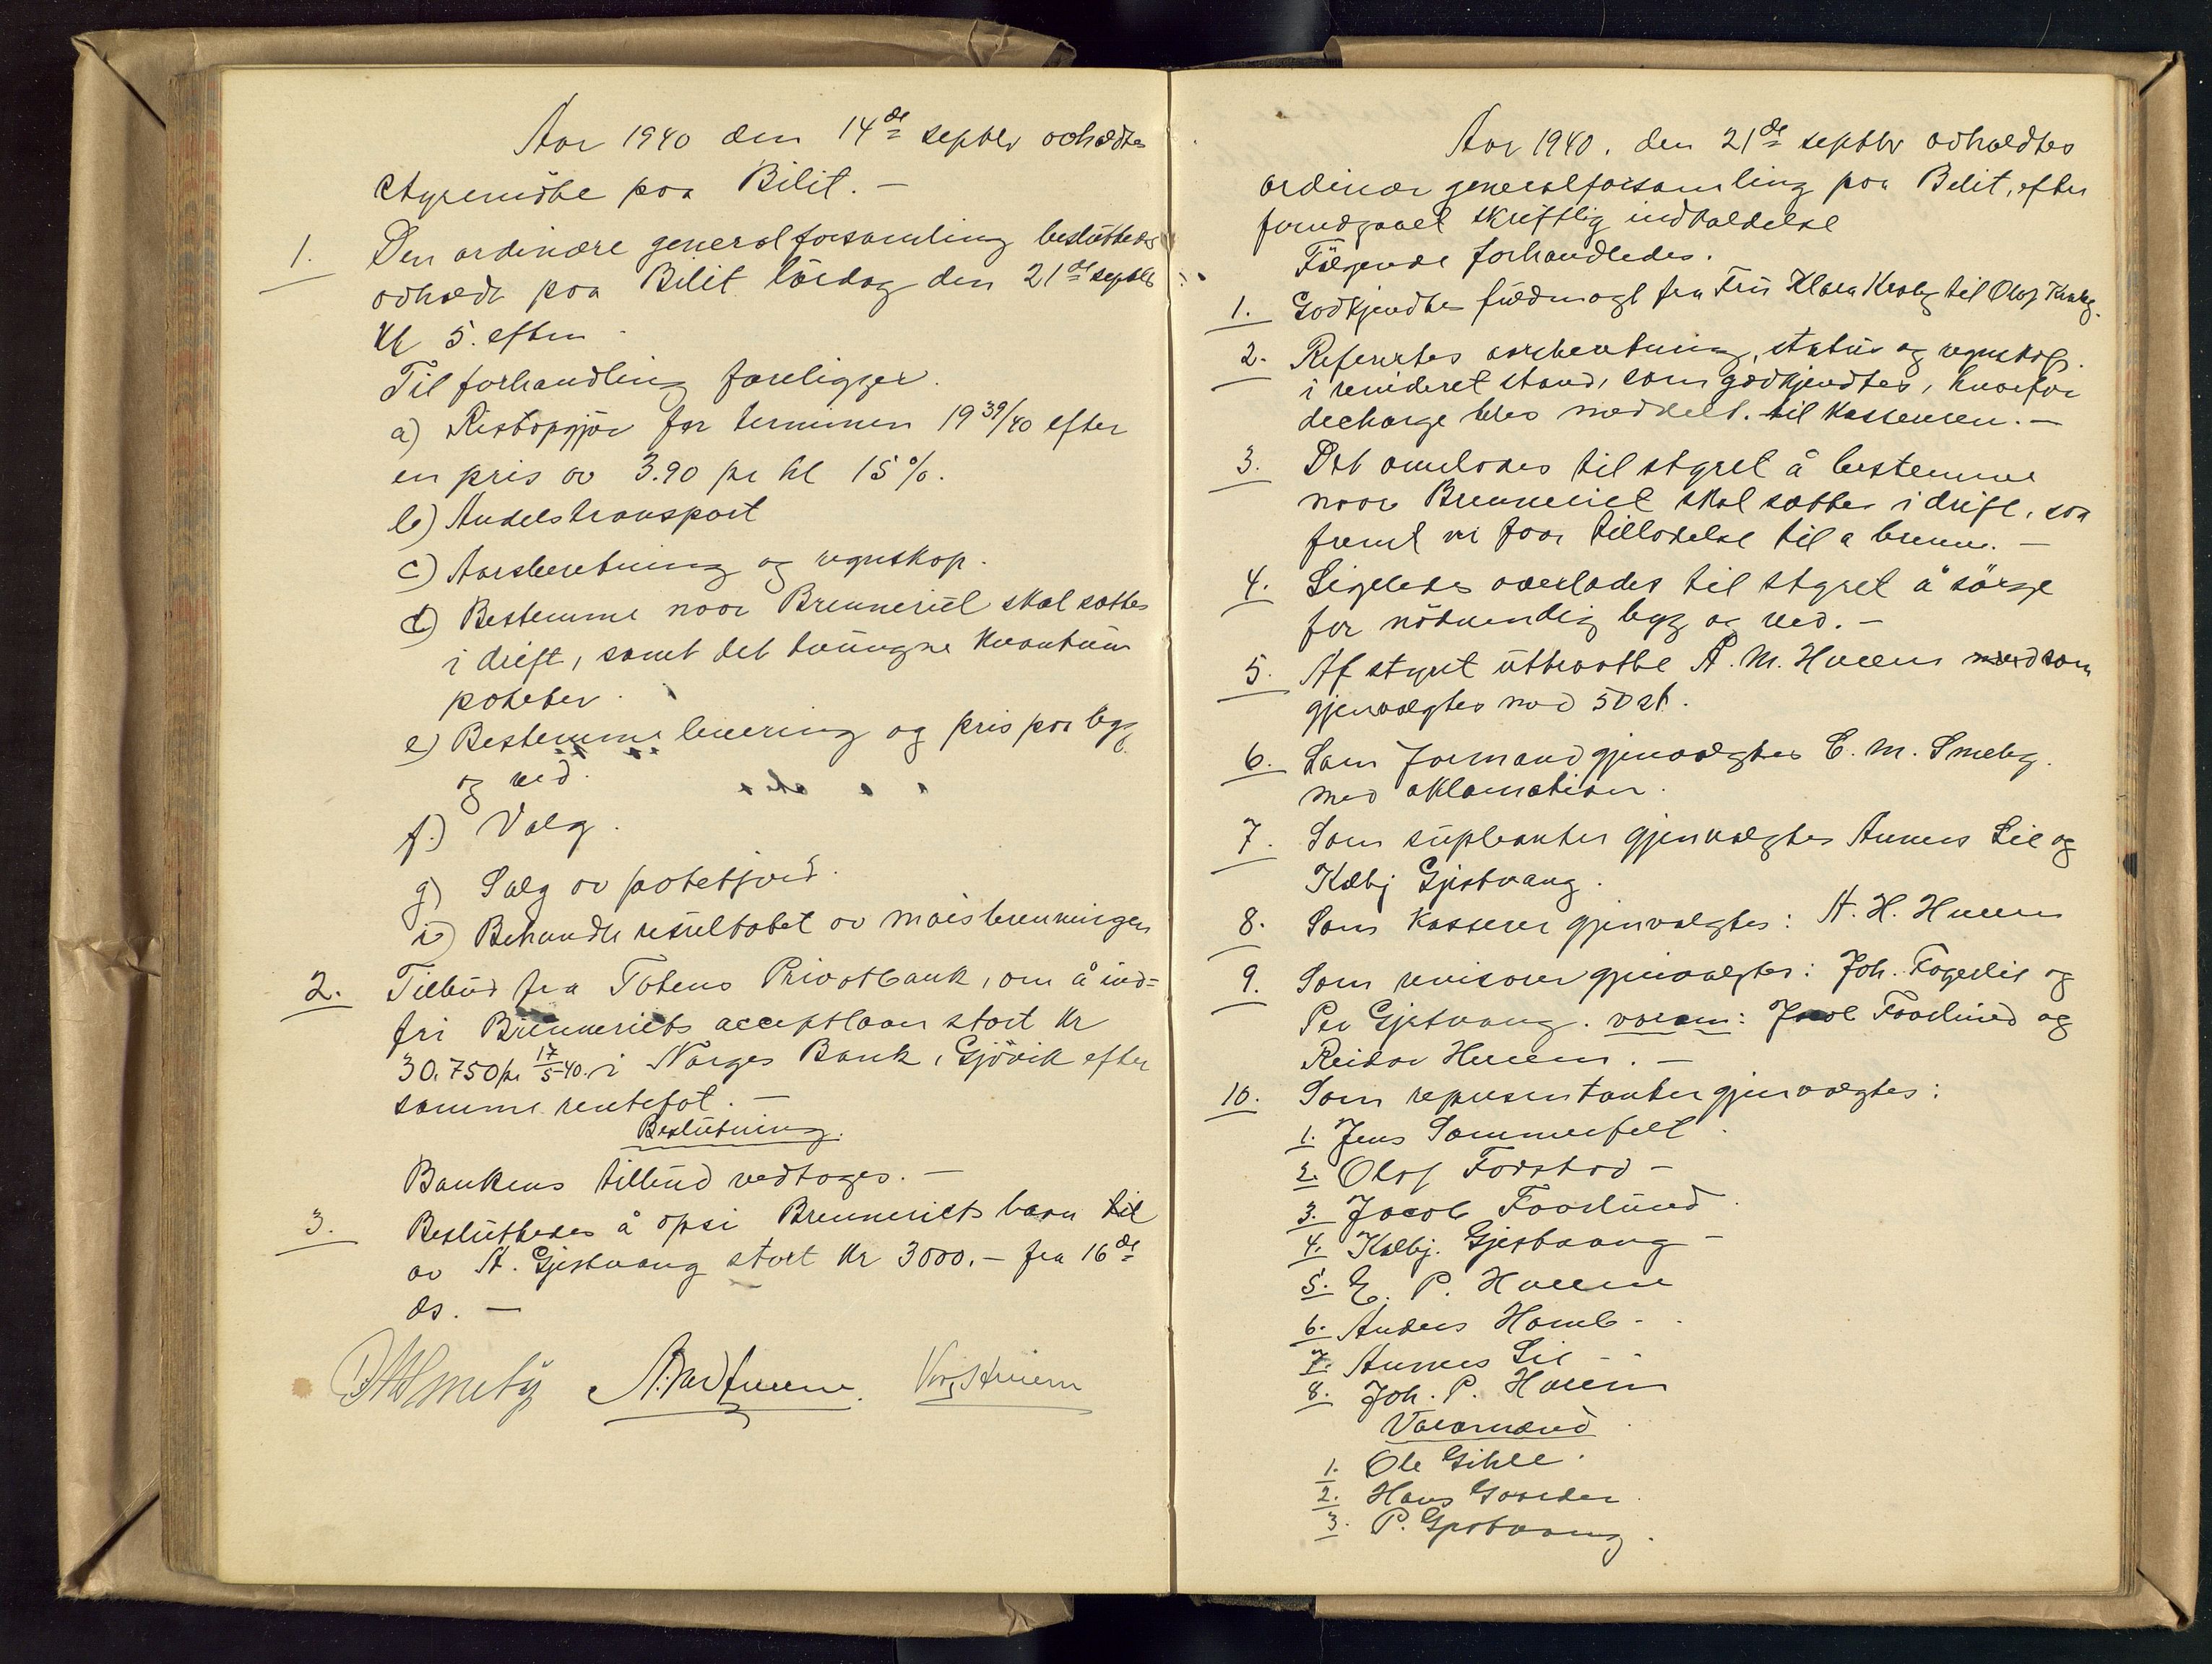 Aar 1940 den 14de septbr avholdtes
styremöte paa Bilit. —
1. Den ordinære generalforsamling besluttedes
avholdt paa Bilit lördag den 21de septbr
Kl 5. eftm
Til forhandling foreligger.
a) Restopgjör for terminen 1939/40 efter
en pris av 3.90 pr hl 15%.
b) Andelstransport
c) Aarsberetning og regnskap.
d) Bestemme naar Brenneriet skal sættes
i drift, samt det tvungne kvantum
poteter.
e) Bestemme levering og pris paa byg
og ved.
f) Valg.
g) Salg av potetjord.
i) Behandle resultatet av maisbrenningen
2. Tilbud fra Totens Privatbank, om å ind-
fri Brenneriets acceptlaan stort kr
30.750 pr 17/5-40. i Norges Bank, Gjövik efter
samme rentefot. —
Beslutning.
Bankens tilbud vedtages. —
3. Besluttedes å opsi Brenneriets laan til
av A. Gjestvang stort kr 3000.— fra 16de
ds. —
Aar 1940. den 21de septbr avholdtes
ordinær generalforsamling paa Bilit, efter
forutgaaet skriftlig indkaldelse
Fölgende forhandledes.
1. Godkjendtes fuldmagt fra Fru Klara Kraby til Olaf Kraby.
2. Refertes aarsberetning, status og regnskap.
i revideret stand, som godkjendtes, hvorfor
decharge blev meddelt. til kassereren. —
3. Det overlodes til styret å bestemme
naar Brenneriet skal sættes i drift, saa
fremt vi faar tilladelse til a brenne. —
4. Ligeledes overlodes til styret å sörge
for nödvendig byg og ved. —
5. Af styret uttraatte A. M. Hveem som
gjenvalgtes med 50 st.
6. Som formand gjenvalgtes E. M. Smeby.
med aklamation.
7. Som supleanter gjenvalgtes Annæus Lie og
Kolbj Gjestvang.
8. Som kasserer gjenvalgtes: A. H. Hveem
9. Som revisorer gjenvalgtes: Joh. Fagerlie og
Per Gjestvang. varam: Jacob Faarlund og
Reidar Hveem. —
10. Som representanter gjenvalgtes:
1. Jens Sommerfelt.
2. Olaf Fodstad —
3. Jacob Faarlund.
4. Kolbj. Gjestvang —
5. E. P. Hveem
6. Anders Homb -.
7. Annæus Lie -
8. Joh. P. Hveem
Varamænd.
1. Ole Gihle.
2. Hans Gaarder.
3. P. Gjestvang.